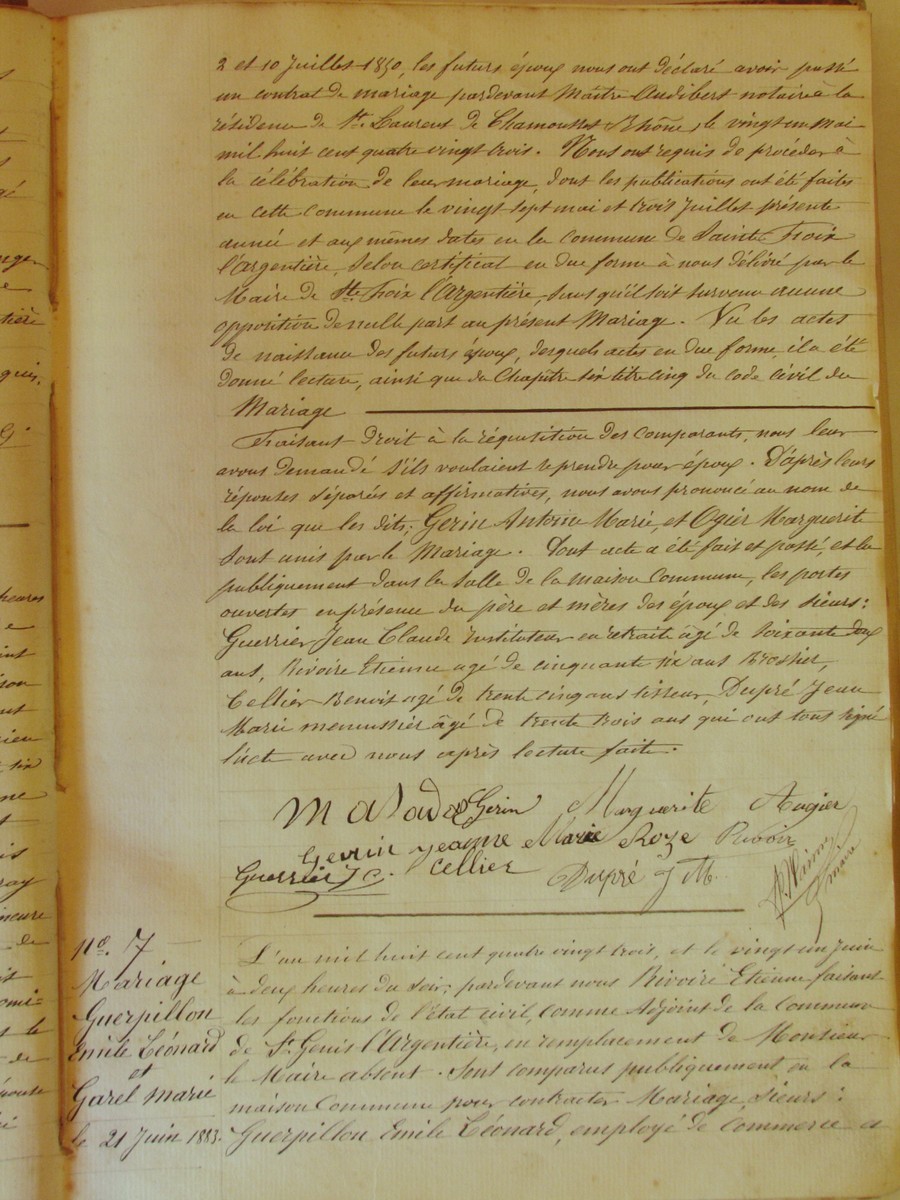 2 et 10 Juillet 1850, les futurs époux nous ont déclaré avoir passé
un contrat de mariage pardevant Maître Audibert notaire à la
résidence de St. Laurent de Chamousset Rhône, le vingt un mai
mil huit cent quatre vingt trois. Nous ont requis de procéder à
la célébration de leur mariage, dont les publications ont été faites
en cette commune le vingt sept mai et trois Juillet présente
année et aux mêmes dates en la commune de Sainte Froix
l'argentière, selon certificat en due forme à nous délivré par le
Maire de Ste Froix l'Argentière, sans qu'il soit survenu aucune
opposition de nulle part au présent Mariage. Vu les actes
de naissance des futurs époux, desquels actes en due forme, il a été
donné lecture, ainsi que du Chapitre six titre cinq du code civil du
Mariage
Faisant droit à la réquisition des comparants, nous leur
avons demandé s'ils voulaient se prendre pour époux. D'après leurs
réponses séparées et affirmatives, nous avons prononcé au nom de
la loi que les dits; Gerin Antoine Marie, et Ogier Marguerite
sont unis par le Mariage. Dont acte a été fait et passé, et lu
publiquement dans la salle de la maison commune, les portes
ouvertes en présence du père et mères des époux et des sieurs:
Guerrier Jean Claude instituteur en retraite âgé de soixante deux
ans, Rivoire Etienne agé de cinquante six ans
Cellier Benoit agé de trente cinq ans tisseur, Dupré Jean
Marie menuisier âgé de trente trois ans qui ont tous signé
l'acte avec nous après lecture faite.
Gerin Marguerite Augier
Gerin Jeanne Marie Roze Rivoir
Guerrier J C. Cellier Dupré J M.
maire
No. 7
Mariage
Guerpillon
Emile Léonard
et
Garel Marie
le 21 Juin 1883.
L'an mil huit cent quatre vingt trois, et le vingt un Juin
à deux heures du soir; pardevant nous Rivoire Etienne faisant
les fonctions de l'état civil, comme Adjoint de la Commune
de St. Genis l'Argentière, en remplacement de Monsieur
le Maire absent. Sont comparus publiquement en la
maison Commune pour contracter Mariage, Sieurs:
Guerpillon Emile Léonard, employé de Commerce a